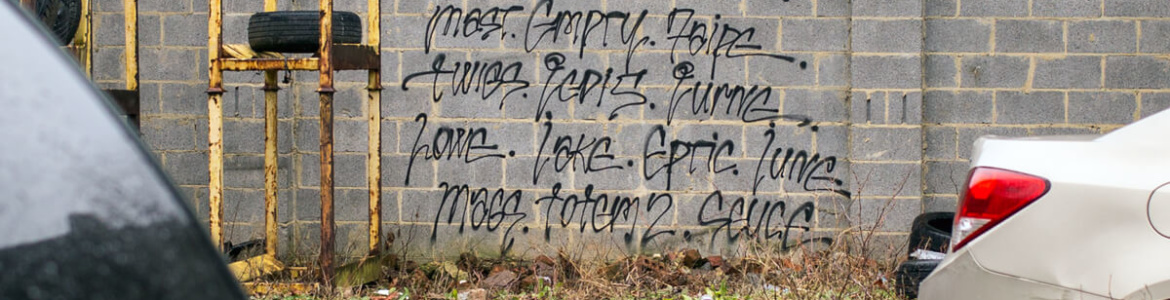 Most. Empty. Faipe.
twigs. Jepis. Jurne.
Lowe. Jake. Eptic. June.
Mass. totem2. Seuce